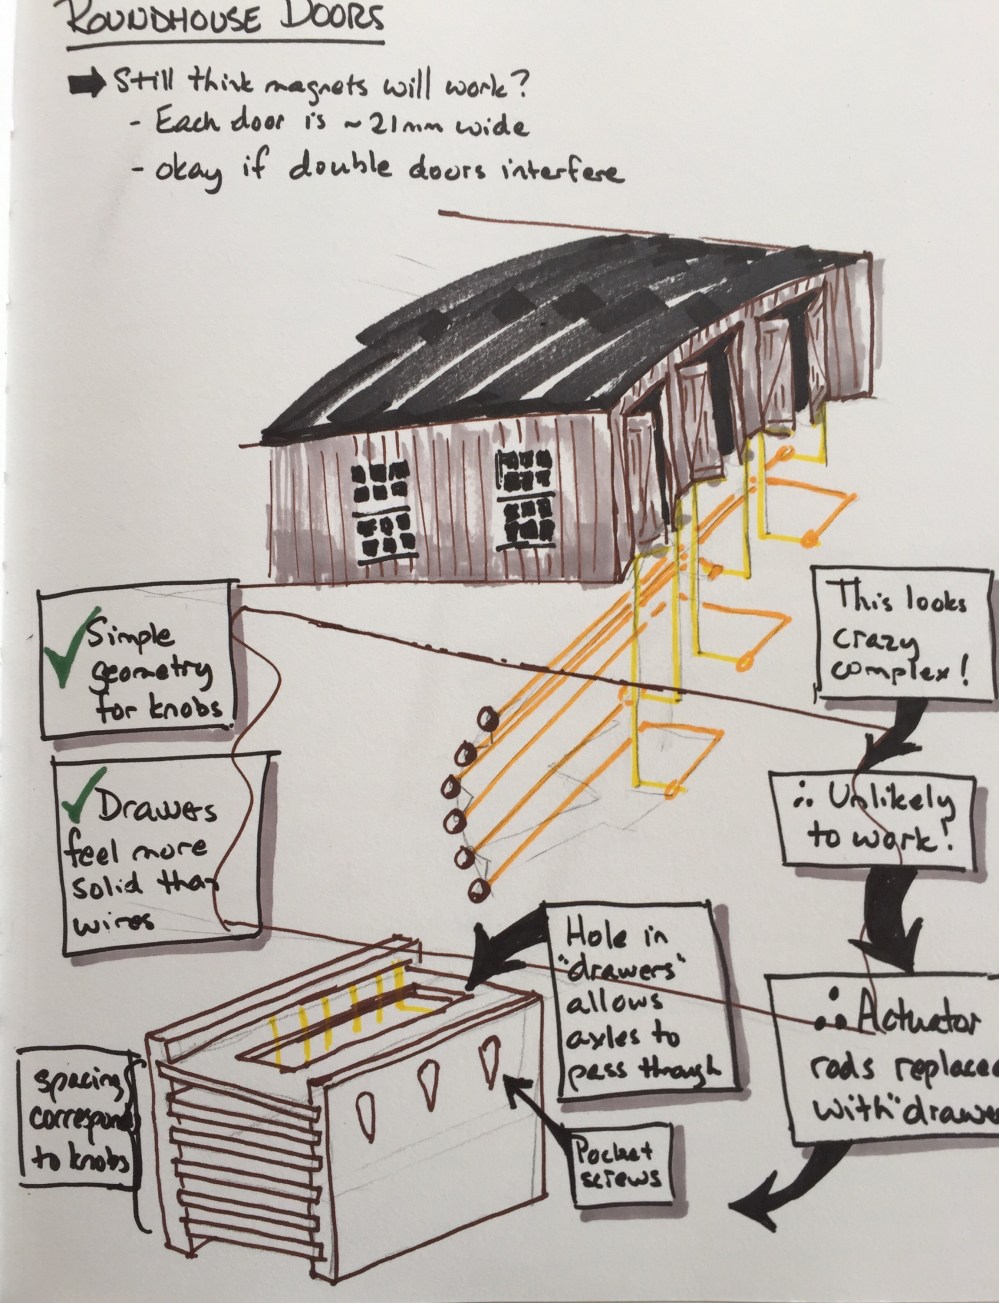 ROUNDHOUSE DOORS
Still think magnets will work?
- Each door is ~21mm wide
- okay if double doors interfere
✓ Simple
geometry
for knobs
✓ Drawers
feel more
solid than
wires
This looks
crazy
complex!
∴ Unlikely
to work!
Hole in
"drawers"
allows
axles to
pass through
∴ Actuator
rods replaced
with "drawe
spacing
corresponds
to knobs
Pocket
screws